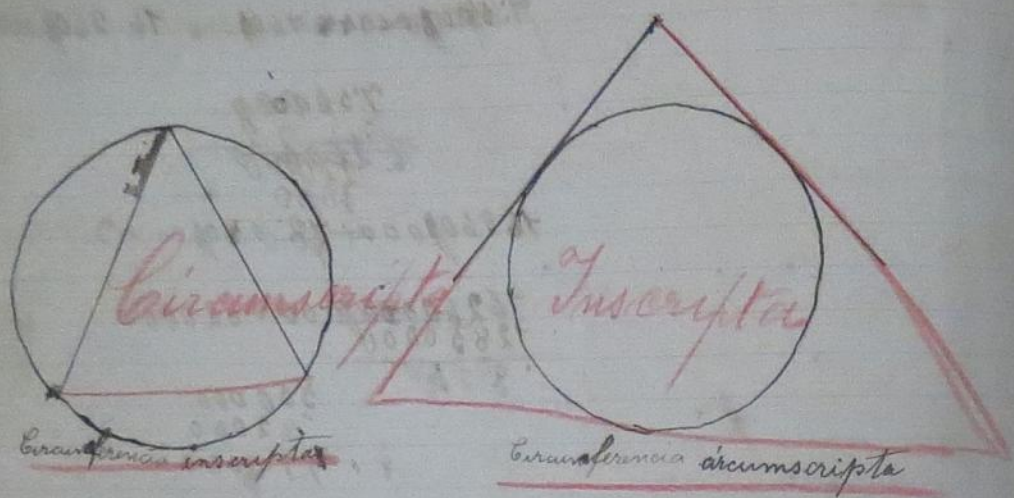 Circumscripta
Inscripta
Circumferencia inscripta
Circumferencia circumscripta